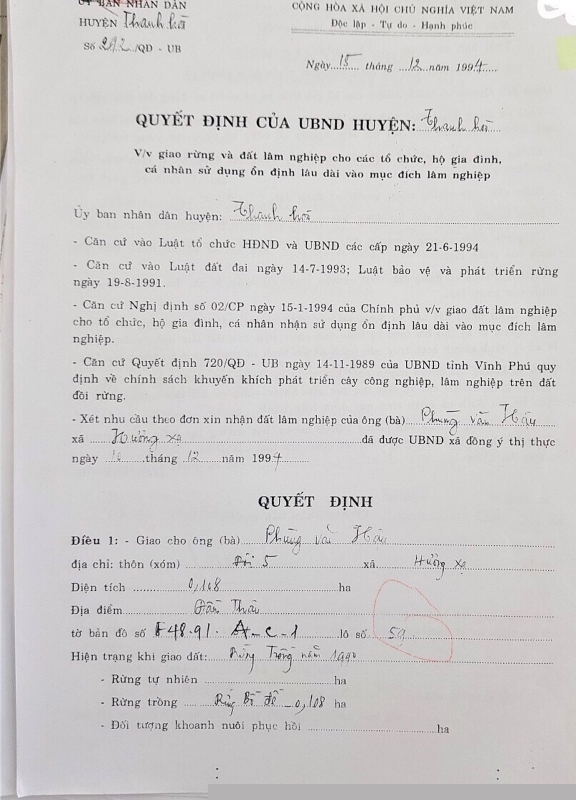 ỦY BAN NHÂN DÂN
HUYỆN Thanh hòa
Số 292/QĐ - UB
CỘNG HÒA XÃ HỘI CHỦ NGHĨA VIỆT NAM
Độc lập - Tự do - Hạnh phúc
Ngày 15 tháng 12 năm 1994
QUYẾT ĐỊNH CỦA UBND HUYỆN: Thanh hòa
V/v giao rừng và đất lâm nghiệp cho các tổ chức, hộ gia đình,
cá nhân sử dụng ổn định lâu dài vào mục đích lâm nghiệp
Ủy ban nhân dân huyện: Thanh hòa
- Căn cứ vào Luật tổ chức HĐND và UBND các cấp ngày 21-6-1994
- Căn cứ vào Luật đất đai ngày 14-7-1993; Luật bảo vệ và phát triển rừng
ngày 19-8-1991.
- Căn cứ Nghị định số 02/CP ngày 15-1-1994 của Chính phủ v/v giao đất lâm nghiệp
cho tổ chức, hộ gia đình, cá nhân nhận sử dụng ổn định lâu dài vào mục đích lâm
nghiệp.
- Căn cứ Quyết định 720/QĐ - UB ngày 14-11-1989 của UBND tỉnh Vĩnh Phú quy
định về chính sách khuyến khích phát triển cây công nghiệp, lâm nghiệp trên đất
đồi rừng.
- Xét nhu cầu theo đơn xin nhận đất lâm nghiệp của ông (bà) Phùng văn Hậu
xã Hương xạ đã được UBND xã đồng ý thị thực
ngày tháng 12 năm 1994
QUYẾT ĐỊNH
Điều 1: - Giao cho ông (bà) Phùng văn Hậu
địa chỉ: thôn (xóm) Đội 5 xã Hương xạ
Diện tích 0,108 ha
Địa điểm
tờ bản đồ số F48.91. A-C-1 lô số 59
Hiện trạng khi giao đất: Rừng Trồng năm 1990
- Rừng tự nhiên ha
- Rừng trồng Rừng Bồ đề - 0,108 ha
- Đối tượng khoanh nuôi phục hồi ha